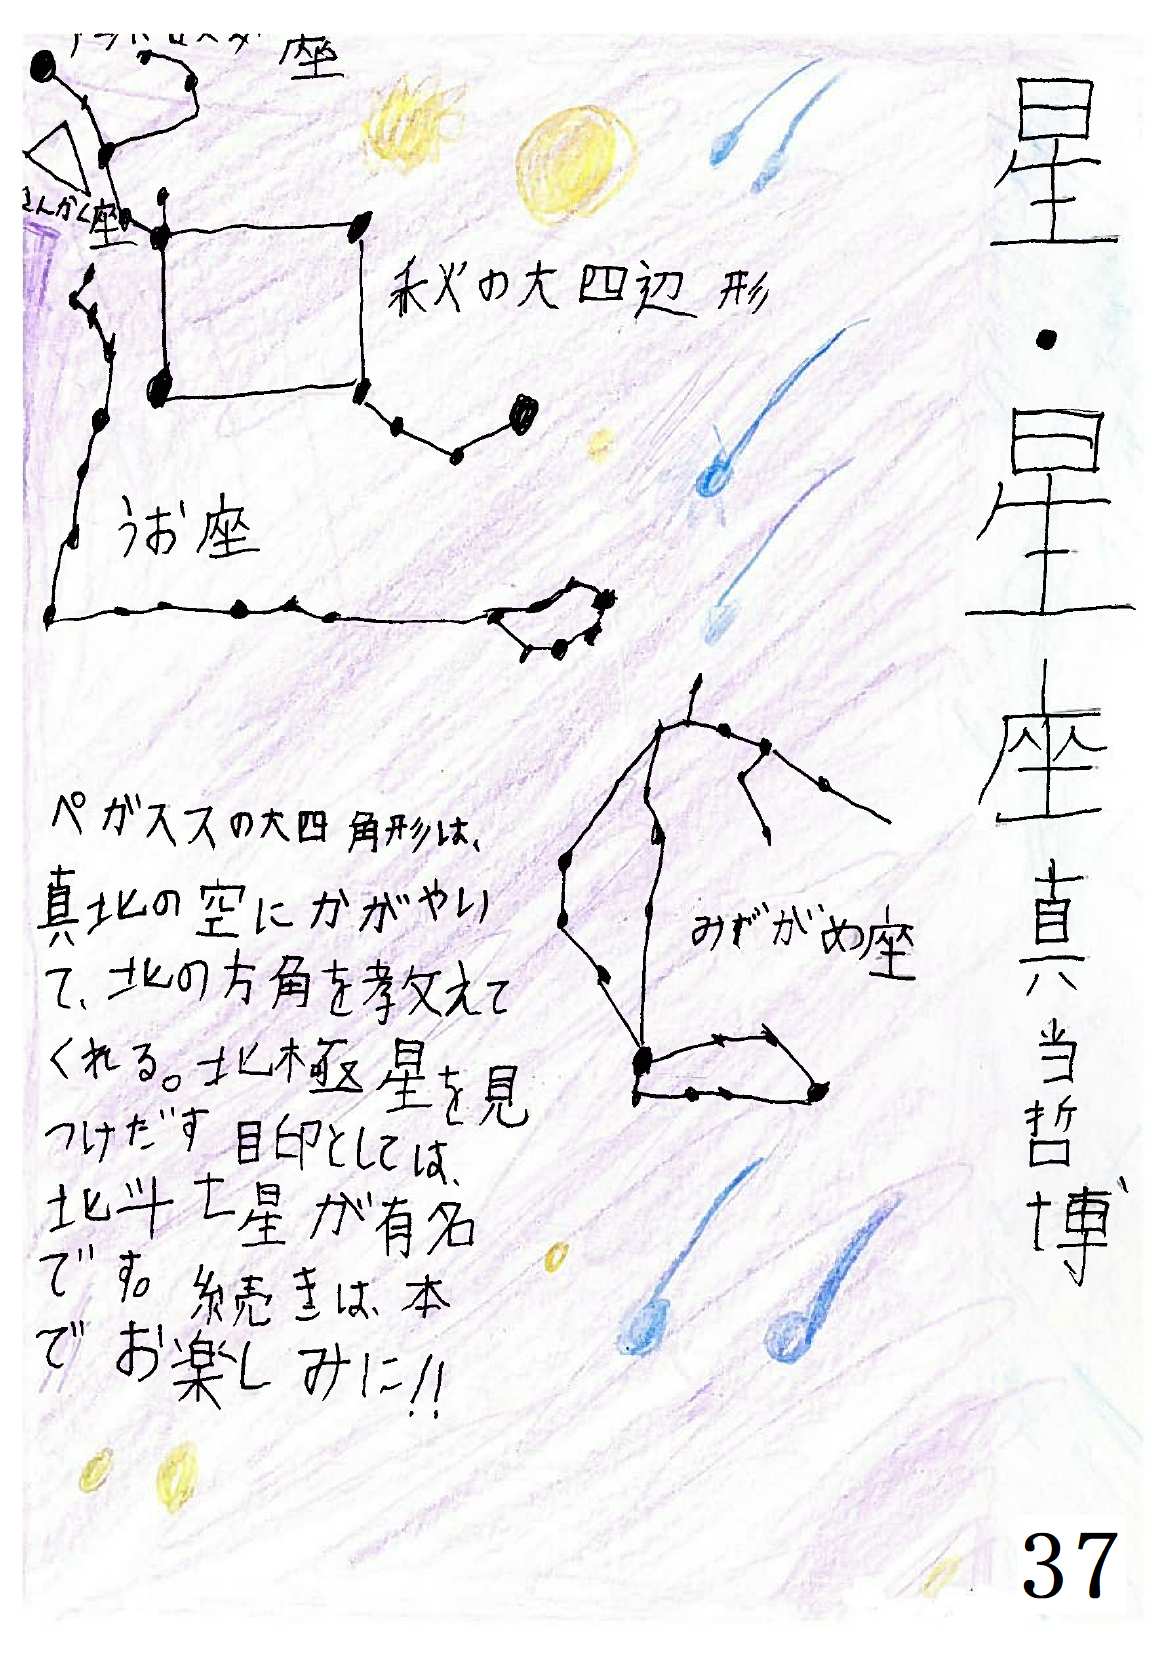 星・星座
真当哲博
座
さんかく座
秋の大四辺形
うお座
みずがめ座
ペガススの大四角形は、
真北の空にかがやい
て、北の方角を教えて
くれる。北極星を見
つけだす目印としては、
北斗七星が有名
です。続きは、本
でお楽しみに!!
37